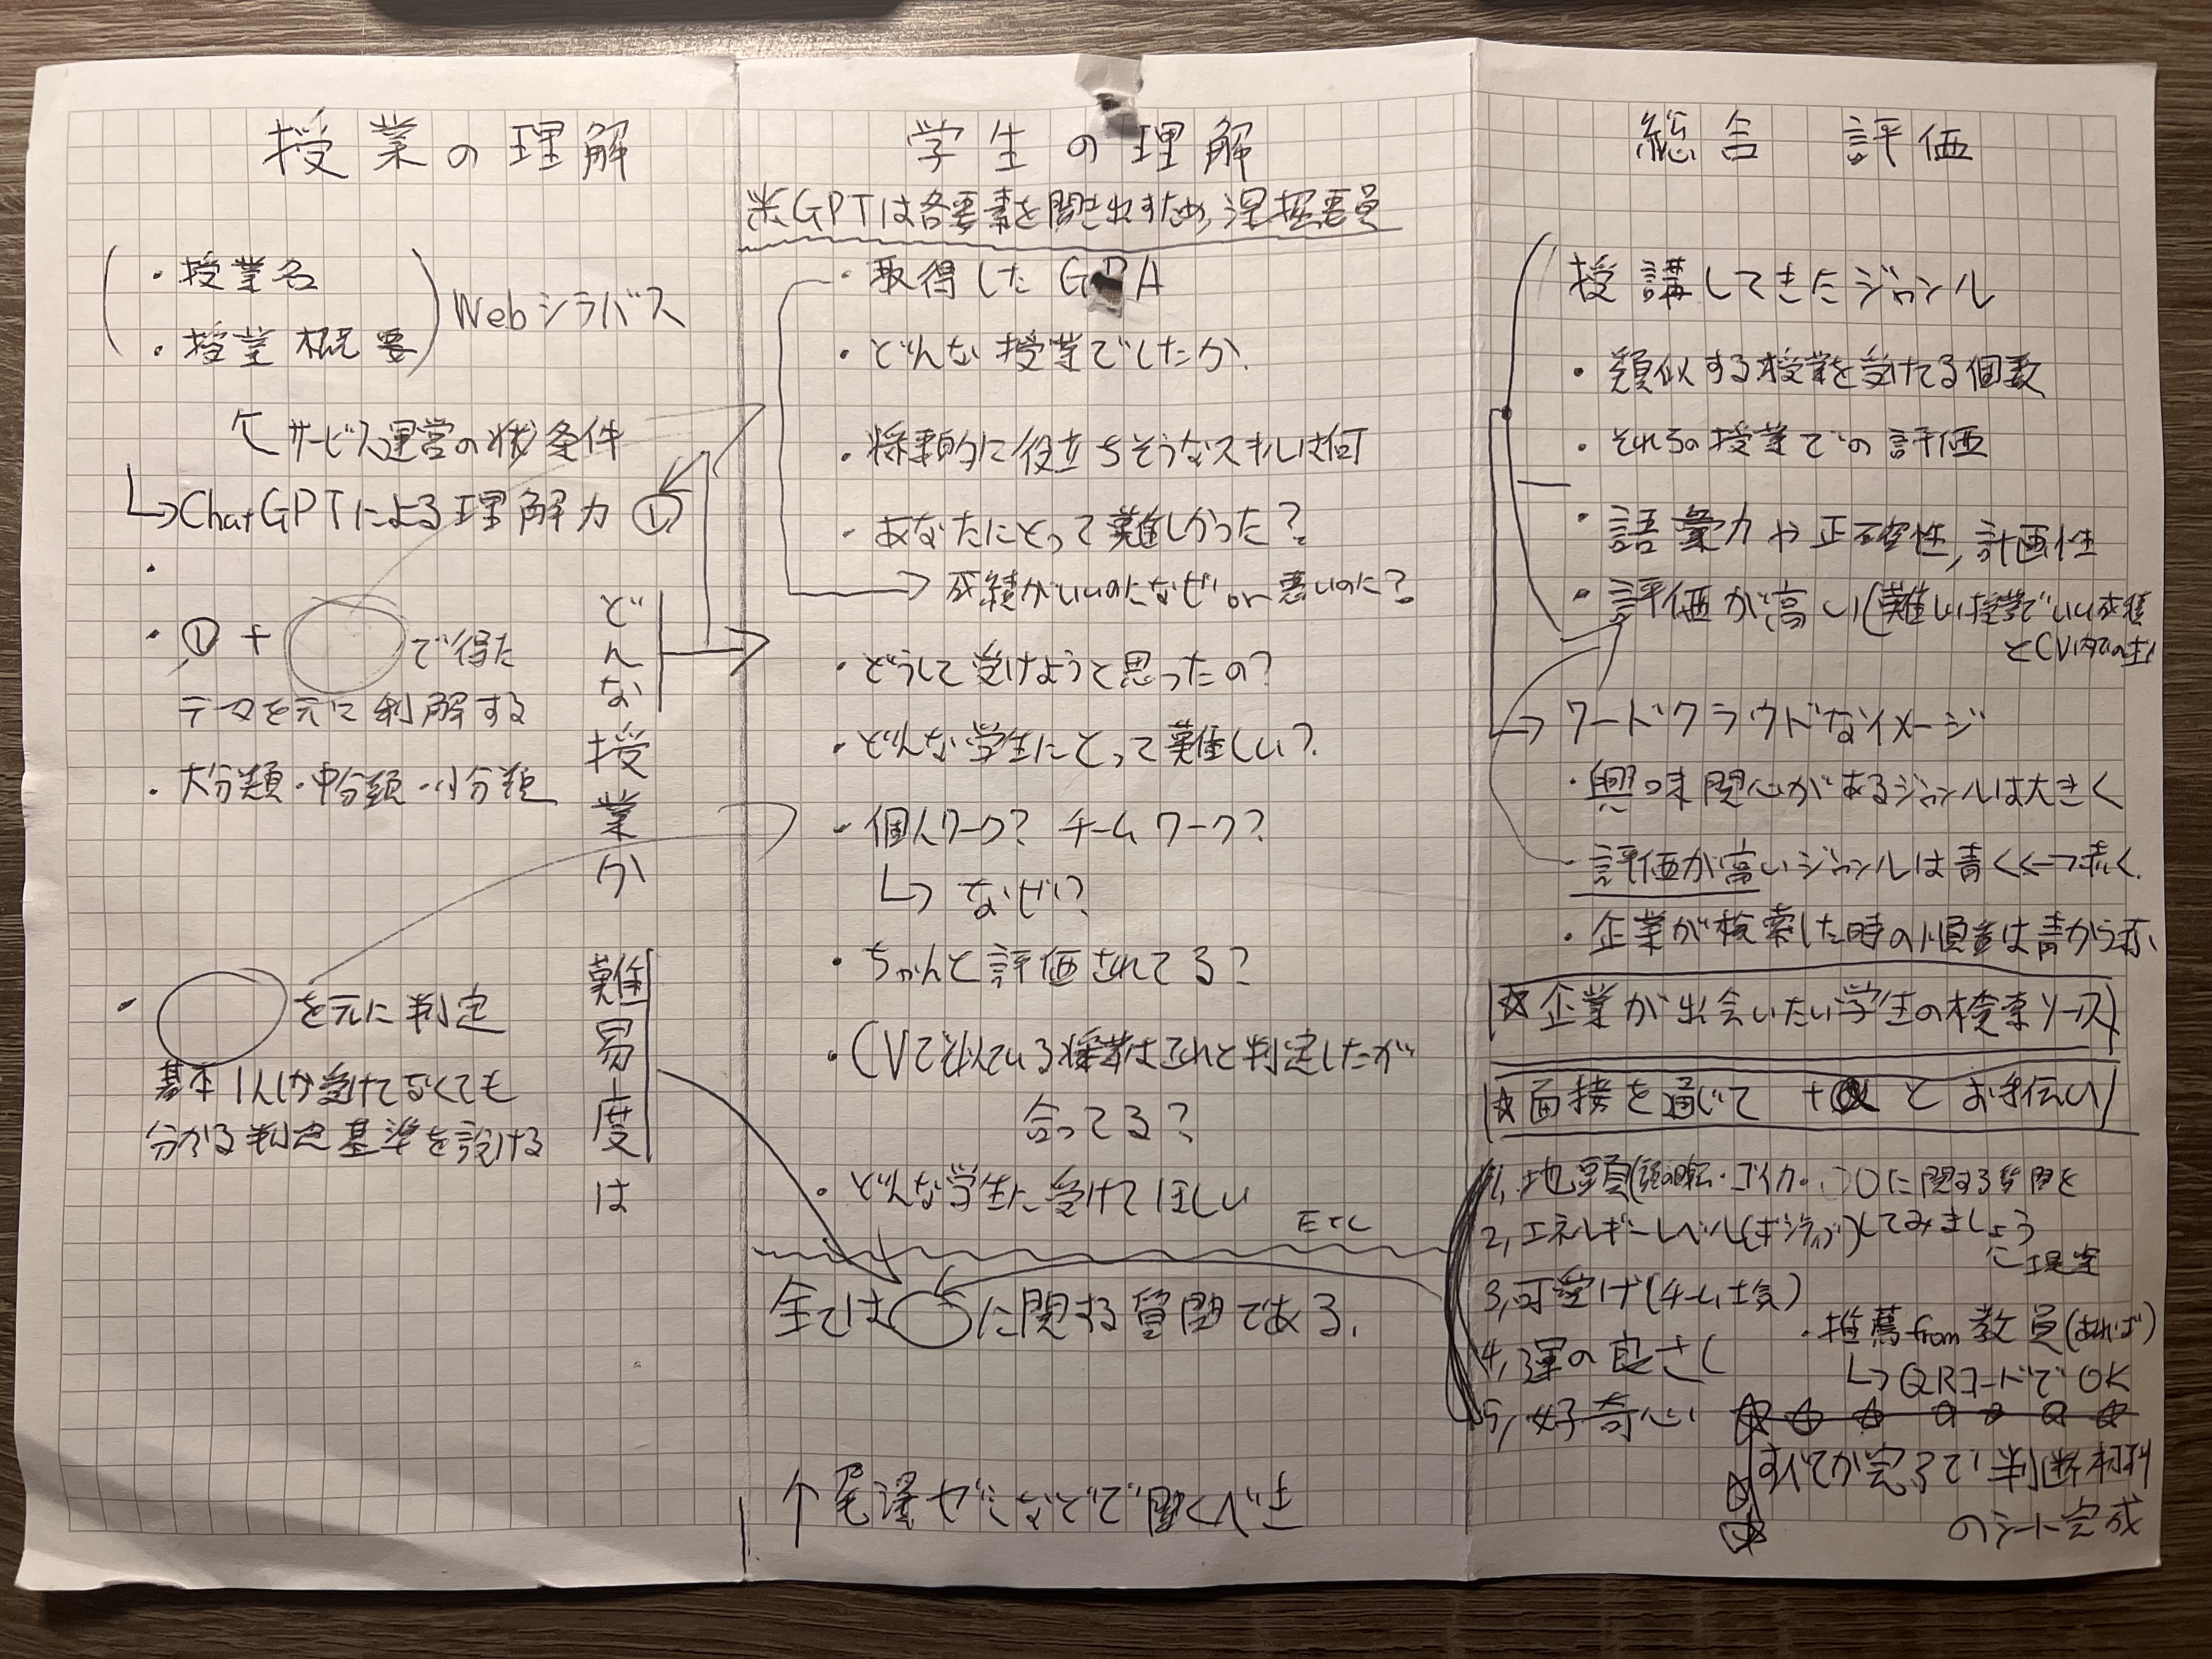 授業の理解
・授業名
・授業概要
Webシラバス
↸サービス運営の状条件
↳ChatGPTによる理解力 ①
・
・①+◯で得た
テーマを元に利解する
・大分類・中分類・小分類
どんな授業か
・◯を元に判定
基本1人しか受けてなくても
分かる判定基準を設ける
難易度は
学生の理解
※GPTは各要素を聞き出すため、深掘要員
・取得したGPA
・どんな授業でしたか
・将来的に役立ちそうなスキルは何
・あなたにとって難しかった?
→成績がいいのになぜor悪いのに?
・どうして受けようと思ったの?
・どんな学生にとって難しい?
・個人ワーク? チームワーク?
↳なぜ?
・ちゃんと評価されてる?
・CVで似ている授業はこれと判定したが
合ってる?
・どんな学生に受けてほしい
ETC
全ては◯に関する質問である。
↑尾澤ゼミなどで聞くべき
総合 評価
授講してきたジャンル
・類似する授業を受けてる個数
・それらの授業での評価
・語彙力や正確性,計画性
・評価が高い(難しい授業でいい成績
とCV内での
→ワードクラウドなイメージ
・興味関心があるジャンルは大きく
・評価が高いジャンルは青く←→赤く
・企業が検索した時の順番は青から赤
☆企業が出会いたい学生の検索ソース
☆面接を通じて +α とお手伝い
1,地頭(頭の回転・ゴイ力・◯◯に関する質問を
2,エネルギーレベル(ポジティブ)してみましょう
3,可愛げ(チーム士気)
4,運の良さ
5,好奇心
・推薦from教員(あれば)
↳QRコードでOK
すべてが完了で判断材料
のシート完成